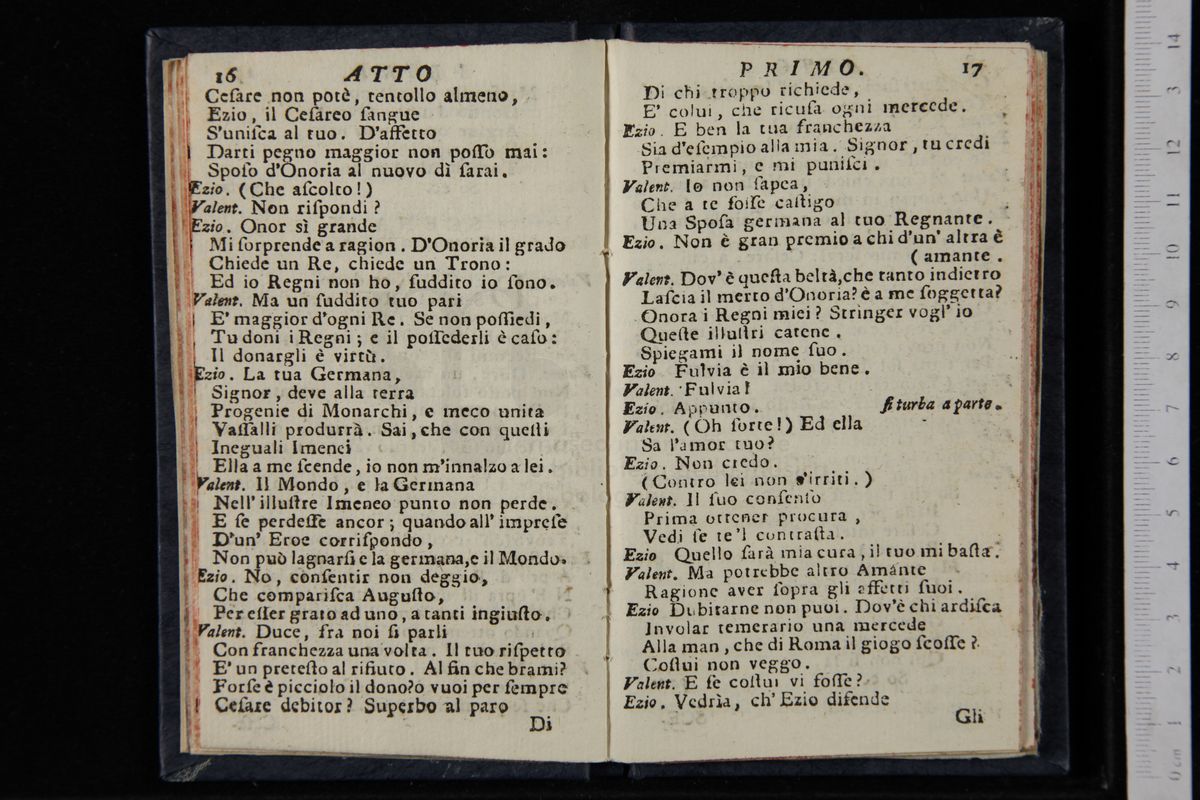 16 ATTO
Ceſare non potè, tentollo almeno,
Ezio, il Ceſareo ſangue
S'uniſca al tuo. D'affetto
Darti pegno maggior non poſſo mai:
Spoſo d'Onoria al nuovo dì ſarai.
Ezio. (Che aſcolto!)
Valent. Non riſpondi?
Ezio. Onor sì grande
Mi ſorprende a ragion. D'Onoria il grado
Chiede un Re, chiede un Trono:
Ed io Regni non ho, ſuddito io ſono.
Valent. Ma un ſuddito tuo pari
E' maggior d'ogni Re. Se non poſſiedi,
Tu doni i Regni; e il poſſederli è caſo:
Il donargli è virtù.
Ezio. La tua Germana,
Signor, deve alla terra
Progenie di Monarchi, e meco unita
Vaſſalli produrrà. Sai, che con queſti
Ineguali Imenei
Ella a me ſcende, io non m'innalzo a lei.
Valent. Il Mondo, e la Germana
Nell' illuſtre Imeneo punto non perde.
E ſe perdeſſe ancor; quando all' impreſe
D'un' Eroe corriſpondo,
Non può lagnarſi e la germana, e il Mondo.
Ezio. No, conſentir non deggio,
Che compariſca Auguſto,
Per eſſer grato ad uno, a tanti ingiuſto.
Valent. Duce, fra noi ſi parli
Con franchezza una volta. Il tuo riſpetto
E' un preteſto al rifiuto. Al fin che brami?
Forſe è picciolo il dono? o vuoi per ſempre
Ceſare debitor? Superbo al paro
Di
PRIMO. 17
Di chi troppo richiede,
E' colui, che ricuſa ogni mercede.
Ezio. E ben la tua franchezza
Sia d'eſempio alla mia. Signor, tu credi
Premiarmi, e mi puniſci.
Valent. Io non ſapea,
Che a te foſſe caſtigo
Una Spoſa germana al tuo Regnante.
Ezio. Non è gran premio a chi d'un' altra è
(amante.
Valent. Dov' è queſta beltà, che tanto indietro
Laſcia il merto d'Onoria? è a me ſoggetta?
Onora i Regni miei? Stringer vogl' io
Queſte illuſtri catene.
Spiegami il nome ſuo.
Ezio Fulvia è il mio bene.
Valent. Fulvia!
Ezio. Appunto. ſi turba a parte.
Valent. (Oh ſorte!) Ed ella
Sa l'amor tuo?
Ezio. Non credo.
(Contro lei non s'irriti.)
Valent. Il ſuo conſenſo
Prima ottener procura,
Vedi ſe te'l contraſta.
Ezio Quello ſarà mia cura, il tuo mi baſta.
Valent. Ma potrebbe altro Amante
Ragione aver ſopra gli affetti ſuoi.
Ezio Dubitarne non puoi. Dov'è chi ardiſca
Involar temerario una mercede
Alla man, che di Roma il giogo ſcoſſe?
Coſtui non veggo.
Valent. E ſe coſtui vi foſſe?
Ezio. Vedrìa, ch' Ezio difende
Gli